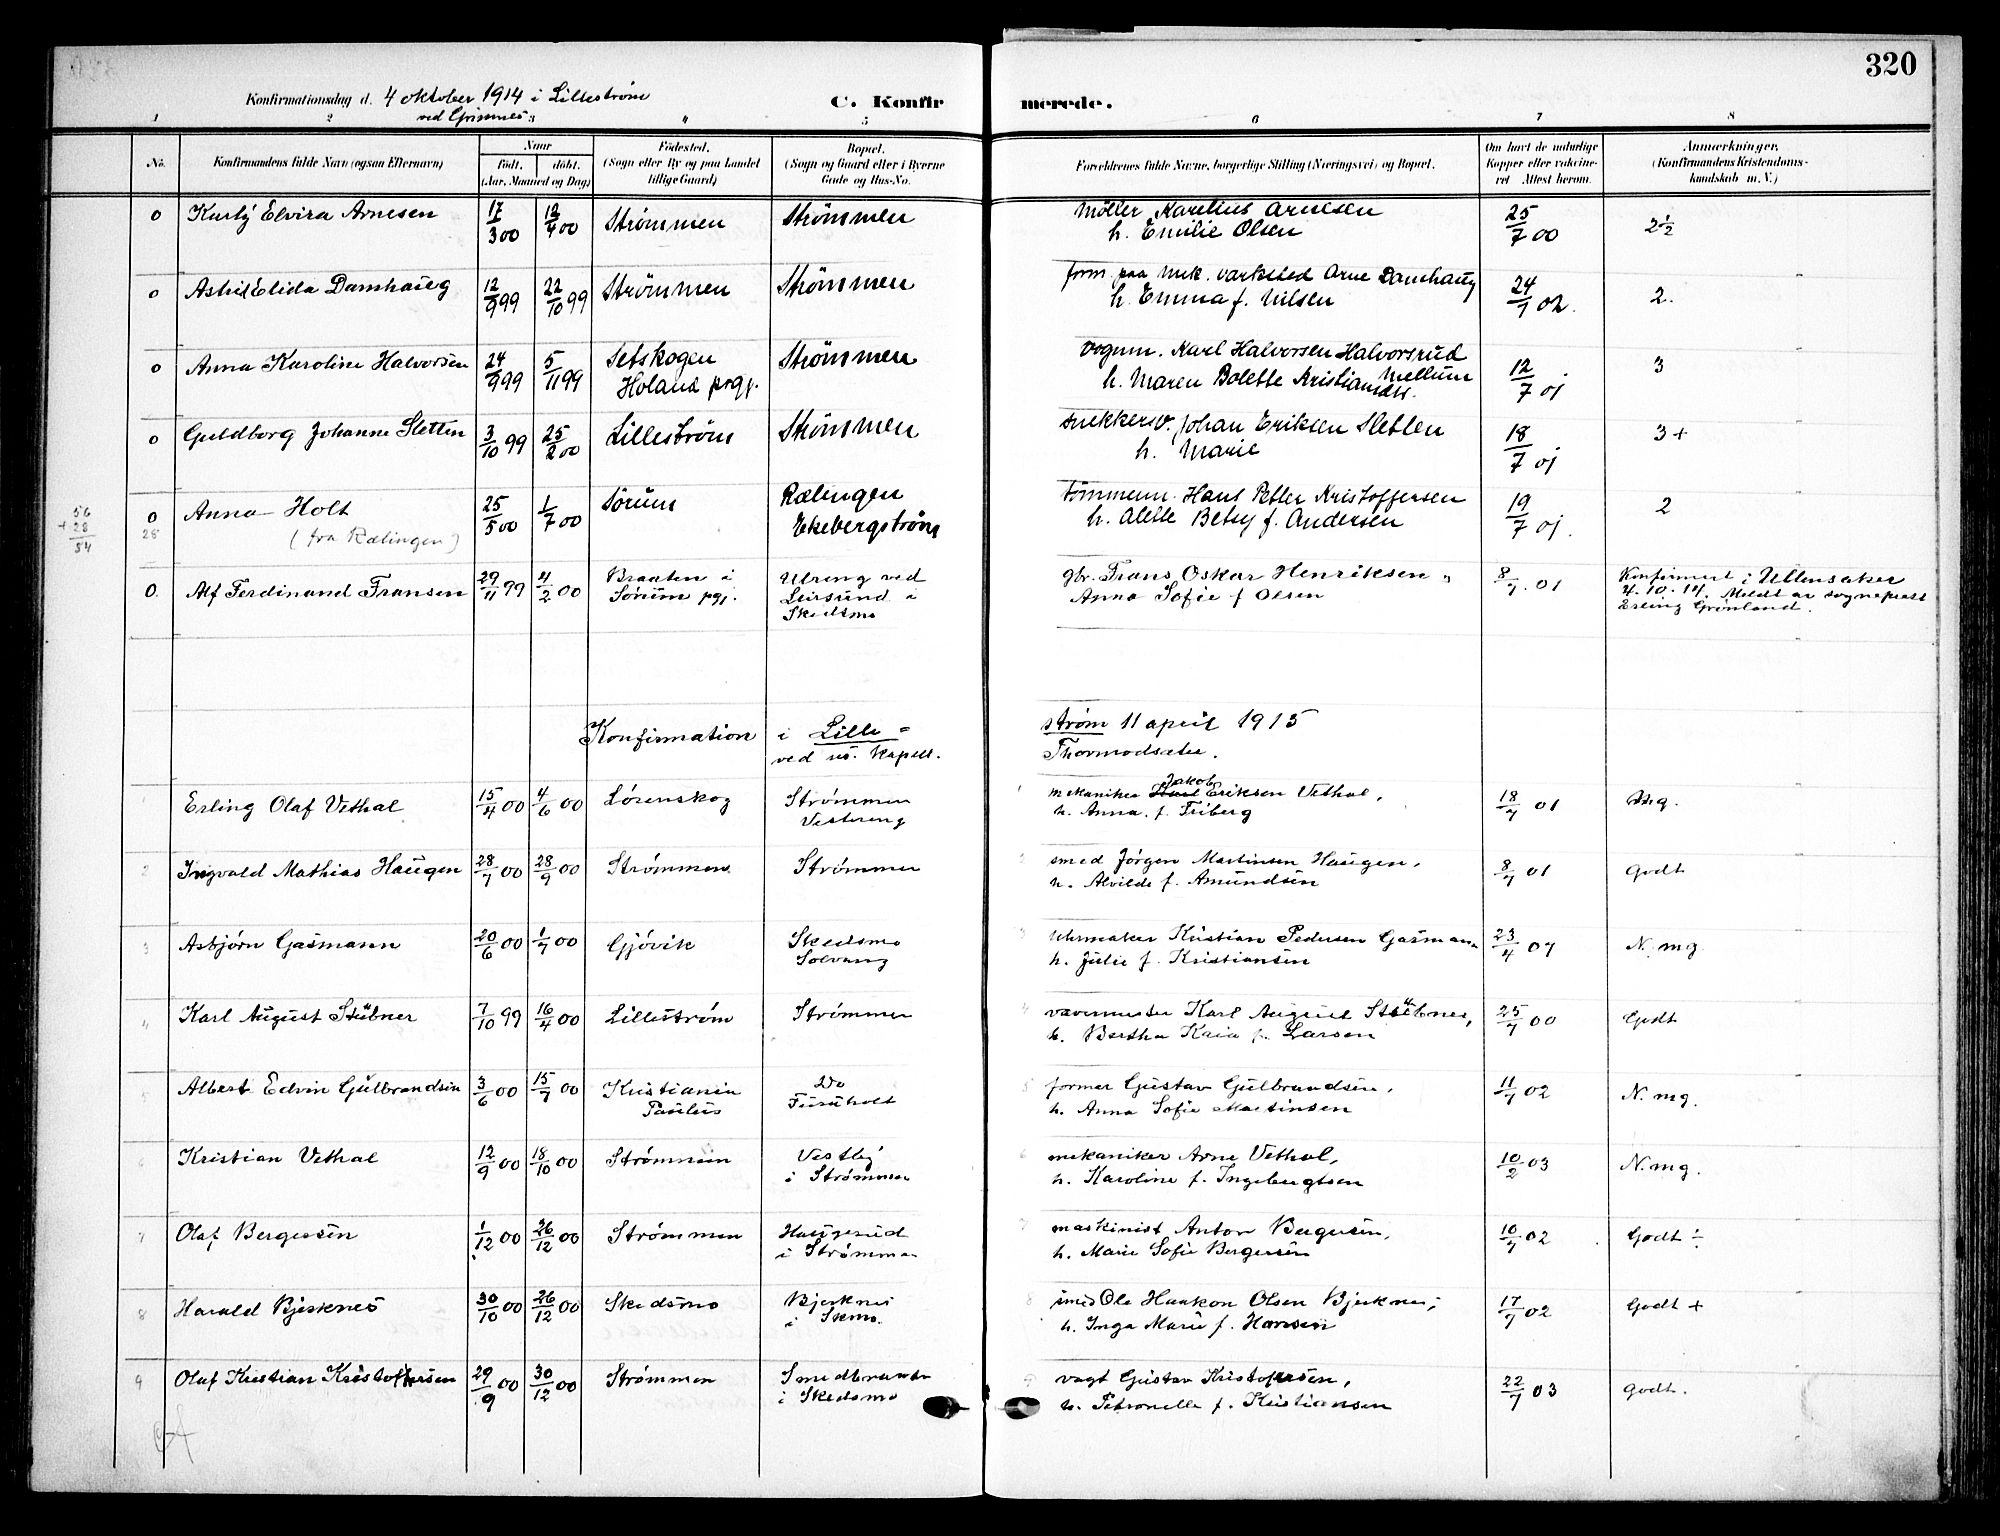 320
Konfirmationsdag d. 4 oktober 1914 i Lillestrøm
ved Grimnes
C. Konfirmerede.
1 2 3 4 5 6 7 8
No. Konfirmandens fulde Navn (ogsaa Efternavn) Naar födt. döbt. (Aar, Maaned og Dag) Födested. (Sogn eller By og paa Landet tillige Gaard) Bopæl. (Sogn og Gaard eller i Byerne Gade og Hus-No. Forældrenes fulde Navne, borgerlige Stilling (Næringsvei) og Bopæl. Om havt de naturlige Kopper eller vaksineret Attest herom. Anmærkninger, (Konfirmandens Kristendomskundskab m. V.)
0 Karly Elvira Arnesen 17/3 00 12/4 00 Strømmen Strømmen Møller Karelius Arnesen 25/7 00 2 1/2
h. Emilie Olsen
0 Astrid Elida Damhaug 12/9 99 22/10 99 Strømmen Strømmen form. paa mek. værksted Arne Damhaug 24/7 02. 2.
h. Emma f. Nilsen
0 Anna Karoline Halvorsen 24/9 99 5/11 99 Setskogen Strømmen Vognm. Karl Halvorsen Halvorsrud 12/7 01 3
Høland prgj. h. Maren Bolette Kristiansdtr. Mellum
0 Guldborg Johanne Sletten 3/10 99 25/2 00 Lillestrøm Strømmen snekkersv. Johan Eriksen Sletten 18/7 01 3+
h. Marie
56
+ 28
84
0 Anna Holt 25/5 00 1/7 00 Sørum Rælingen tømmerm. Hans Petter Kristoffersen 19/7 01. 2
28 (fra Rælingen) Ekebergstrøm h. Alette Betsy f. Andersen
0. Alf Ferdinand Fransen 29/11 99 4/2 00 Braaten i Ulreng ved gbr. Frans Oskar Henriksen 8/7 . 01 Konfirmert i Ullensaker
Sørum pgj. Leirsund i Anna Sofie f Olsen 4.10.14. Meldt av sogneprest
Skedsmo Erling Grønland.
Konfirmation i Lillestrøm 11 april 1915
ved res. kapell. Thormodsæter.
1 Erling Olaf Vethal 15/4 00 4/6 00 Lørenskog Strømmen mekaniker Jakob Eriksen Vethal, 18/7 01 Mg.
Vestereng h. Anna f. Friberg
2 Ingvald Mathias Haugen 28/7 00 28/9 00 Strømmen Strømmen smed Jørgen Martinsen Haugen, 8/7 01 Godt
h. Alvilde f. Amundsen
3 Asbjørn Gasmann 20/6 00 1/7 00 Gjøvik Skedsmo Uhrmaker Kristian Pedersen Gasmann 23/4 07 N. mg.
Solvang h. Julie f. Kristiansen
4 Karl August Stübner 7/10 99 16/4 00 Lillestrøm Strømmen vævermester Karl August Stübner, 25/7 00 Godt
h. Bertha Kaia f. Larsen
5 Albert Edvin Gulbrandsen 3/6 00 15/7 00 Kristiania Do former Gustav Gulbrandsen, 11/7 02 N. mg.
Paulus Furuholt h. Anna Sofie Martinsen
6 Kristian Vethal 12/9 00 18/10 00 Strømmen Vestby mekaniker Arne Vethal, 10/2 03 N. mg.
i Strømmen h. Karoline f. Ingebrigtsen
7 Olaf Bergersen 1/12 00 26/12 00 Strømmen Haugerud maskinist Anton Bergersen, 10/7 02 Godt ÷
i Strømmen h. Marie Sofie Bergersen
8 Harald Bjerknes 30/10 00 26/12 00 Skedsmo Bjerknes smed Ole Haakon Olsen Bjerknes, 17/7 02 Godt +
i Skmo. h. Inga Marie f. Hansen
9 Olaf Kristian Kristoffersen 29/9 00 30/12 00 Strømmen Smedbraaten vagt Gustav Kristoffersen, 22/7 03 Godt.
i Skedsmo h. Petronelle f. Kristiansen